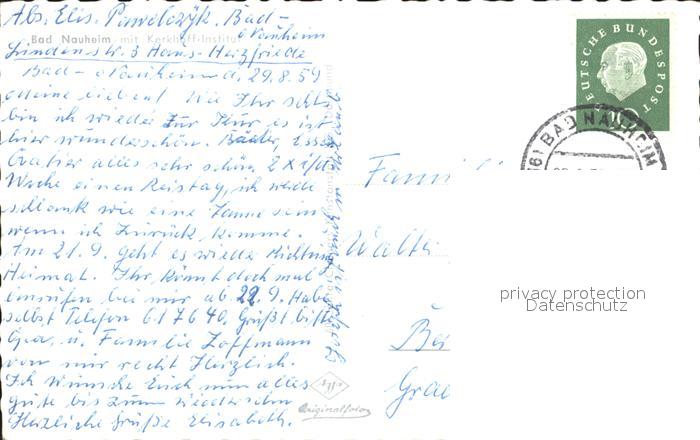 Abs. Elis. Pawelczyk. Bad-
Nauheim
Bad Nauheim mit Kerckhoff-Institut
Lindenstr. 3 Haus-Herzfriede
Bad-Nauheim d, 29.8.59
Meine lieben! Wie Ihr seht
bin ich wieder zur Kur es ist
hier wunderschön. Bäder, Essen
Quatier alles sehr schön 2 x i/d
Woche einen Reistag, ich werde
schlank wie eine Tanne sein
wenn ich zurück komme.
Am 21.9. geht es wieder Richtung
Heimat. Ihr könnt doch mal
anrufen bei mir ab 22.9. Habe
selbst Telefon 617640. Grüßt bitte
u. Familie Hoffmann
von mir recht Herzlich.
Ich wünsche Euch nun alles
gute bis zum wiedersehn
Herzliche Grüße Elisabeth.
Famili
Walte
DEUTSCHE BUNDESPOST
10
(16) BAD NAUHEIM
privacy protection
Datenschutz
Agfa
Originalfoto